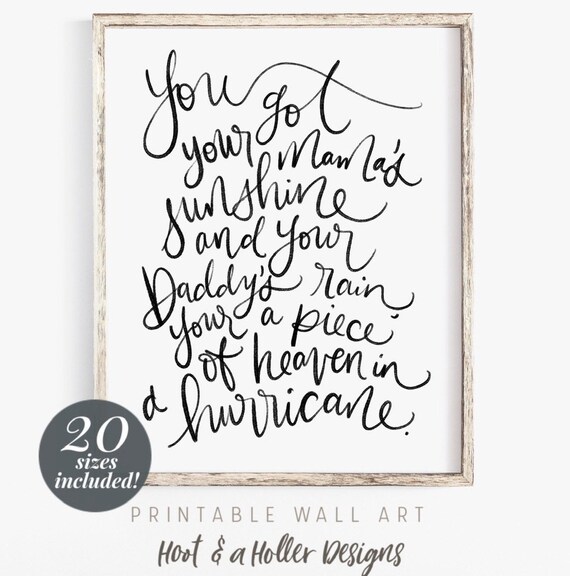 You got
your mama's
sunshine
and your
Daddy's rain,
your a piece
of heaven in
a hurricane.
20
sizes
included!
PRINTABLE WALL ART
Hoot & a Holler Designs